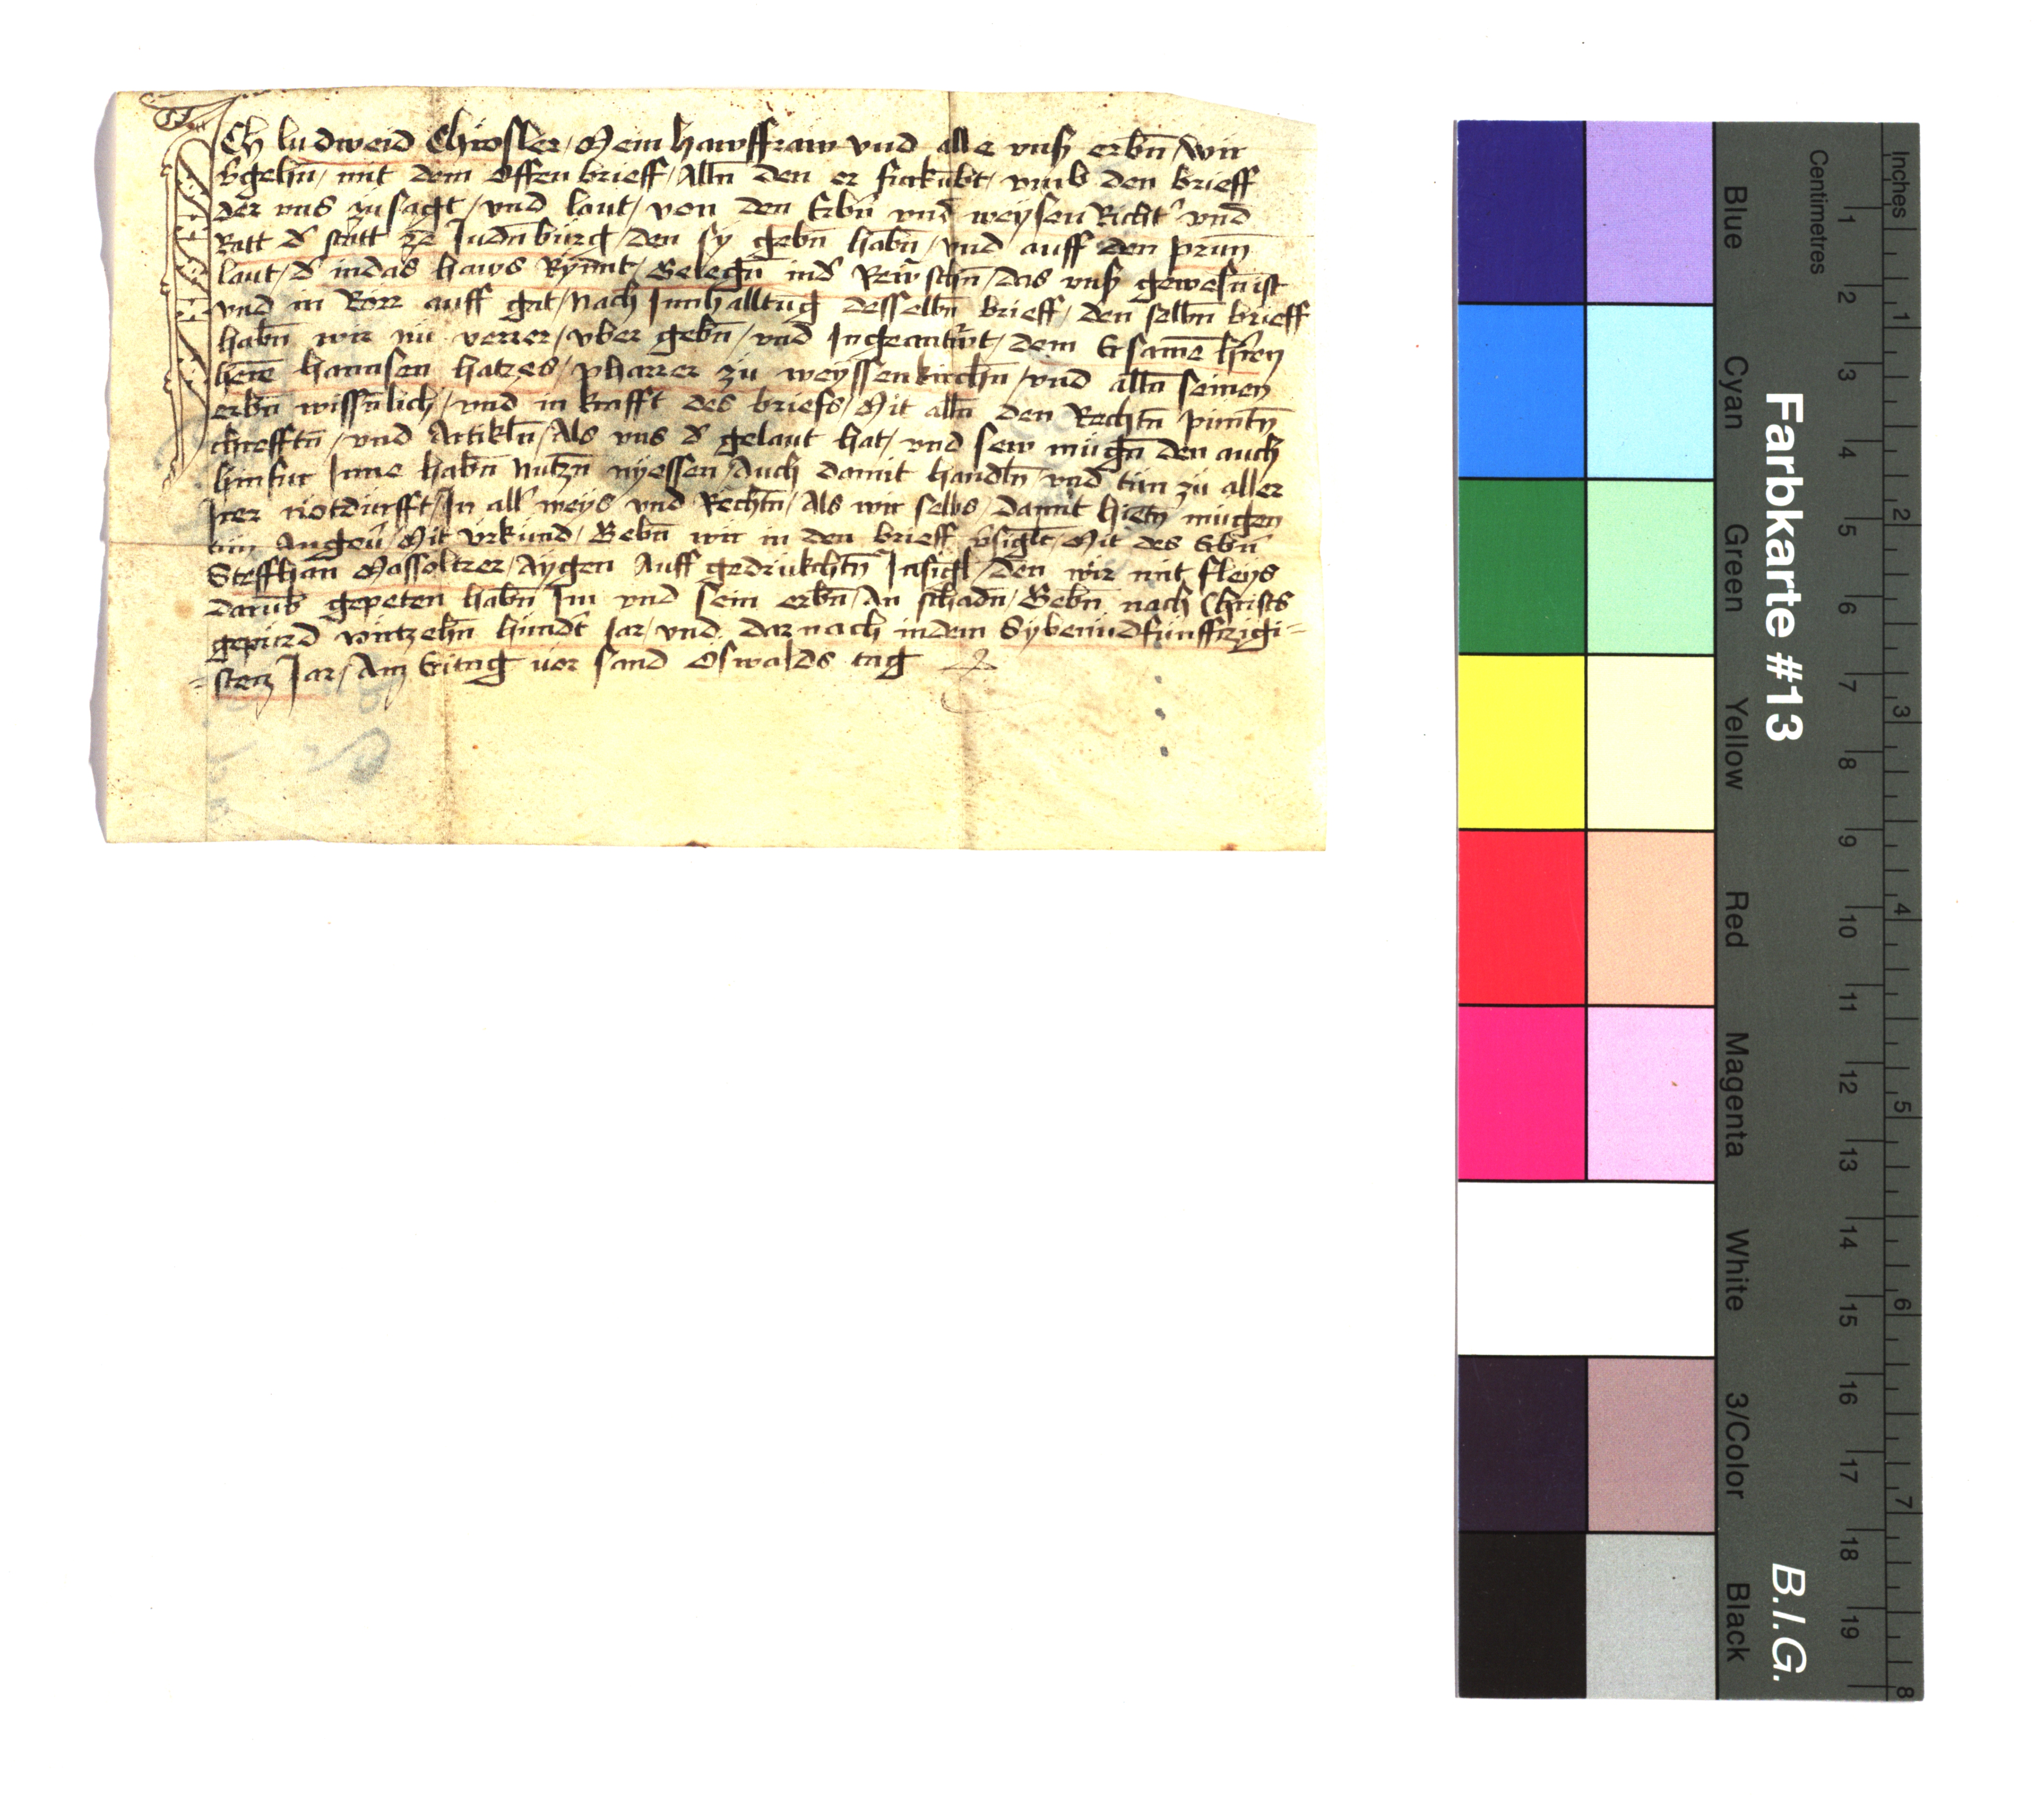 Ich ludweid Chrosler / Mein hawsfraw vnd alle vnß erbn̄ / wir
v̓gehn̄ / mit dem offen brieff / Alln̄ den er furkūbt / vmb den brieff
der vns zu sagt / vnd laut / von den Erbn̄ vnd weysen Richt̓ vnd
Ratt d̓ statt ze Judn̄burg / den sy gebn̄ habn̄ / vnd auff den prun̄
laut / d̓ indas haws Rynnt / Gelegn̄ ind̓ / das vnß gewesn̄ ist
vnd in Rörr auff gat / Nach Innhalltug desselbn̄ brieff / den selbn̄ brieff
habn̄ wir nu verrer / vber gebn̄ / vnd Ingeantwrt / dem Ersamē hr̄en
herrē hannsen hatzes / pharrer zu weyssenkirchn̄ / vnd alln̄ seinen
erbn̄ wissn̄lich / vnd in krafft des briefs / Mit alln̄ den Rechtn̄ pūntn̄
chrefftn̄ / vnd Artikln̄ / Als vns d̓ gelaut hat / vnd sew mugn̄ den auch
hinfur Inne habn̄ Nutzn̄ nyessen / Auch damit handln̄ / vnd tun zu aller
Irer notdurfft / In all̓ weys vnd Rechtn̄ / Als wir selbs / damit hietn̄ mugen
tun Mit vrkund / Gebn̄ wir in den brieff v̓siglt / Mit des Erbn̄
Steffhan Massoltrer / Aygen Auff gedrukchtn̄ Insigl / den wir mit fleys
darūb gepeten habn̄ Im vnd sein erbn̄ / An schadn̄ / Gebn̄ nach Christs
gepurd virtzehn̄ hundt̓ Jar / vnd dar nach indem Sybenundfunffzigi=
=sten Jar / Am Eritag vor sand Oswalds tag
Farbkarte #13
B.I.G.
Centimetres
Inches
Blue
Cyan
Green
Yellow
Red
Magenta
White
3/Color
Black
1 2 3 4 5 6 7 8 9 10 11 12 13 14 15 16 17 18 19
1 2 3 4 5 6 7 8